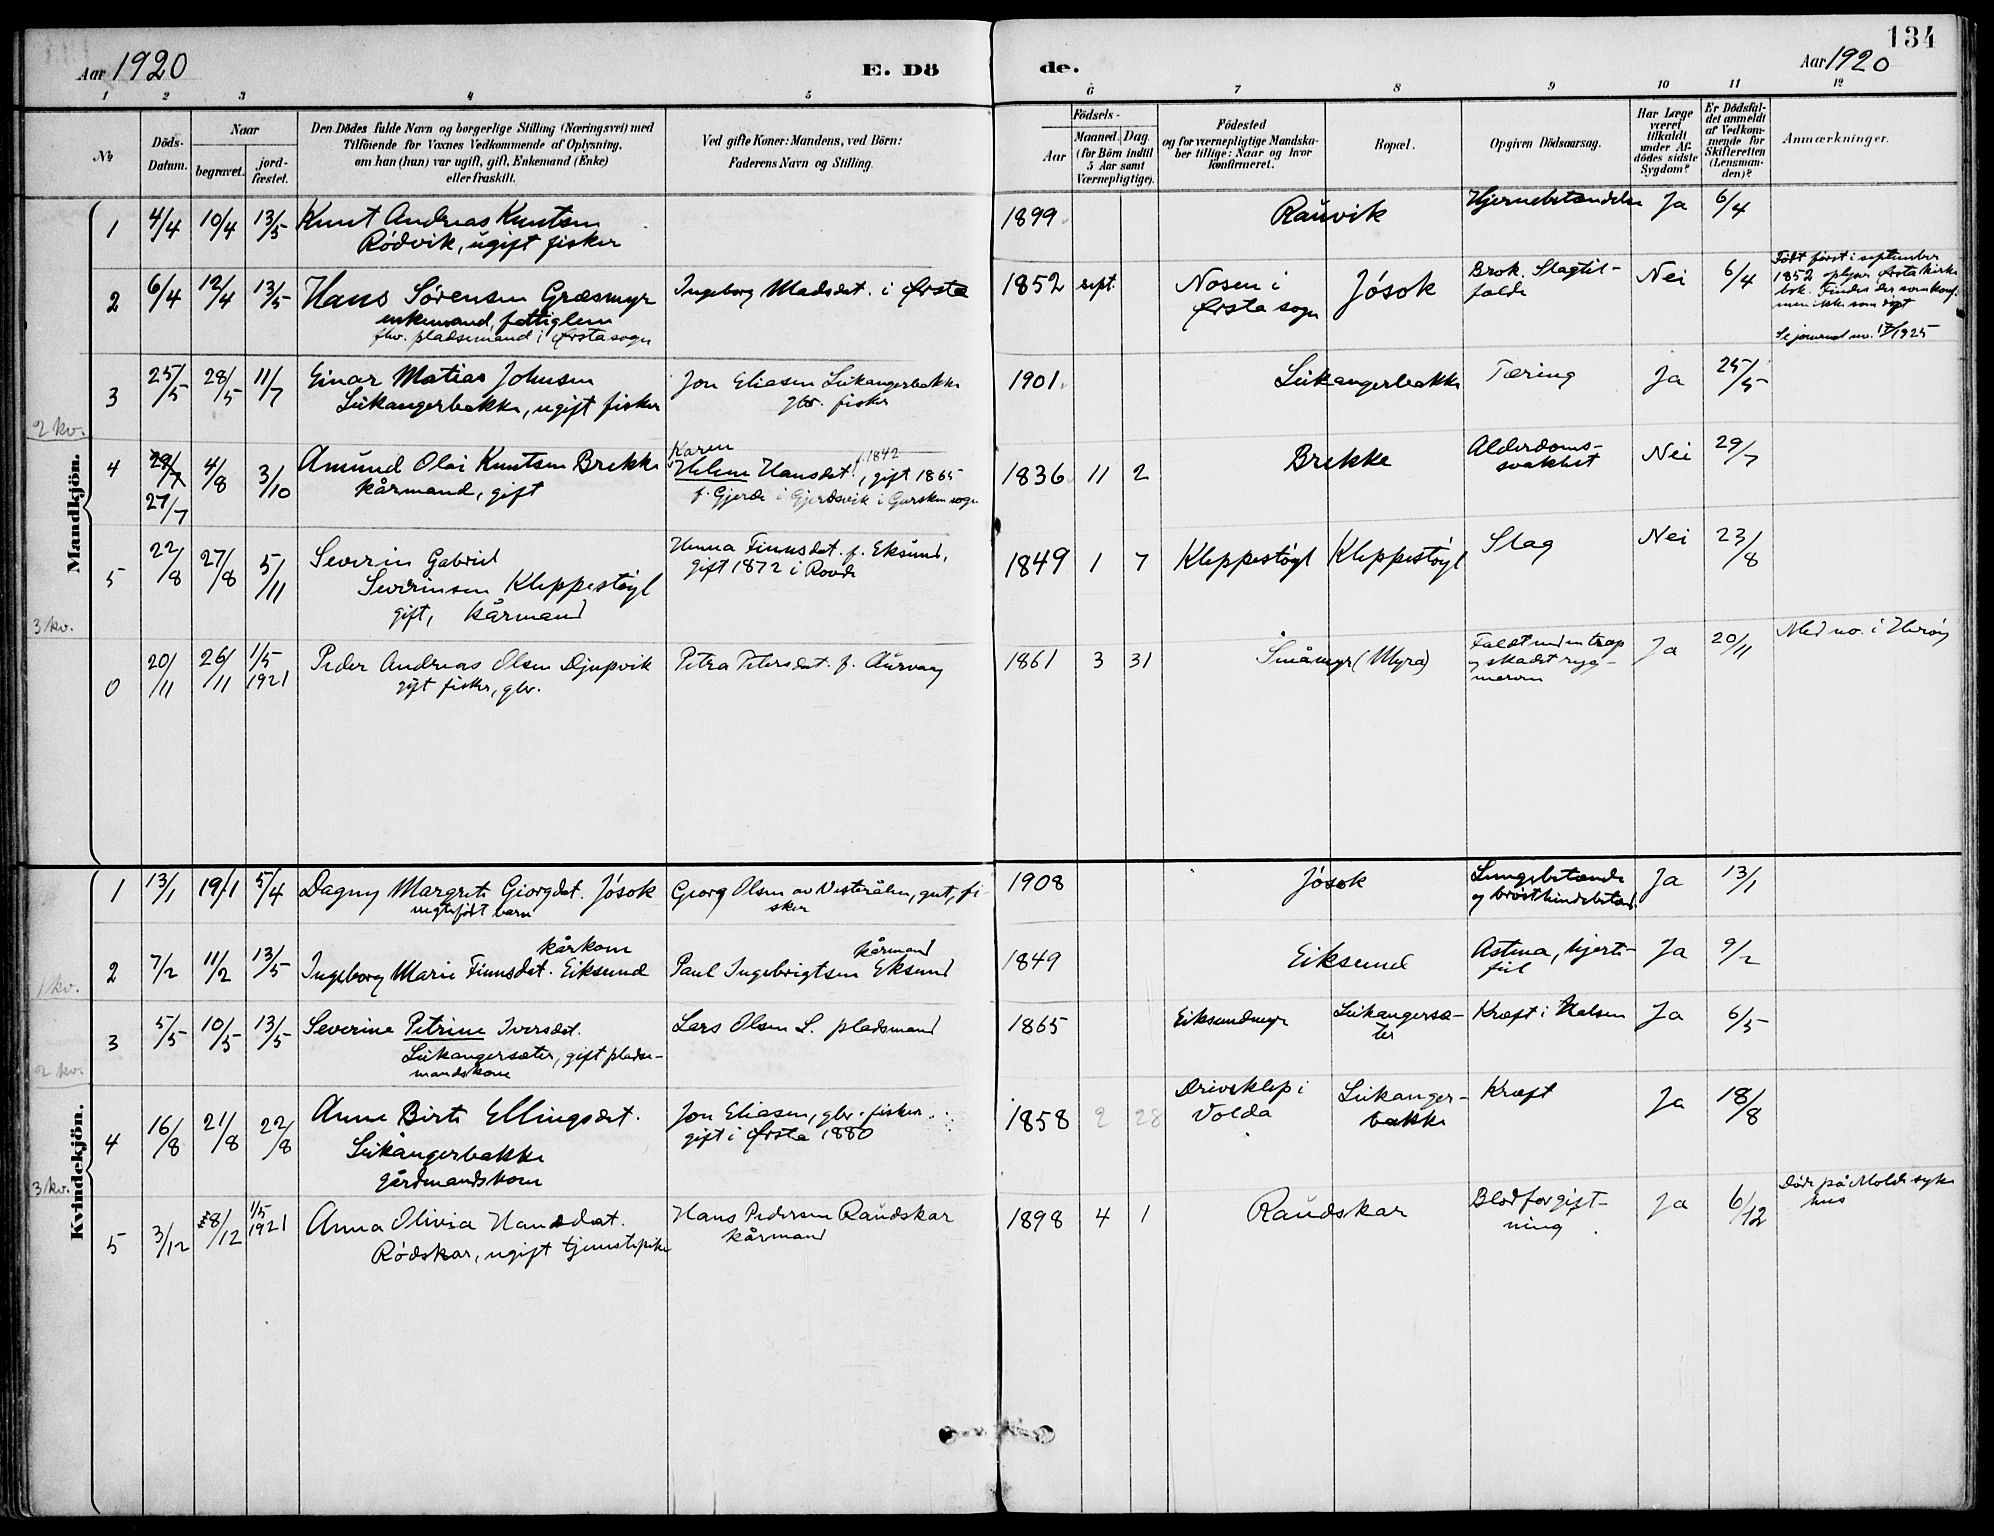 134
Aar 1920
E. Dö
de.
Aar 1920
1 2 3 4 5 6 7 8 9 10 11 12
№
Döds-
Datum.
Naar
begravet.
jord-
fæstet.
Den Dödes fulde Navn og borgerlige Stilling (Næringsvei) med
Tilföiende for Voxnes Vedkommende af Oplysning,
om han (hun) var ugift, gift, Enkemand (Enke)
eller fraskilt.
Ved gifte Koner: Mandens, ved Börn:
Faderens Navn og Stilling.
Födsels-
Aar
Maaned. Dag.
(for Börn indtil
5 Aar samt
Værnepligtige).
Födested
og for værnepligtige Mandska-
ber tillige: Naar og hvor
konfirmeret.
Bopæl.
Opgiven Dödsaarsag.
Har Læge
været
tilkaldt
under Af-
dödes sidste
Sygdom?
Er Dödsfal-
det anmeldt
af Vedkom-
mende for
Skifteretten
(Lensman-
den)?
Anmærkninger.
Mandkjön.
1 4/4 10/4 13/5 Knut Andreas Knutsen
Rødvik, ugift fisker
1899 Rauvik Hjernebetændelse Ja 6/4
2 6/4 12/4 13/5 Hans Sørensen Græsmyr
enkemand, fattiglem
fhv. pladsemand i Ørsta sogn
Ingeborg Madsdat. i Ørsta
1852 sept. Nosen i
Ørsta sogn
Jøsok
Brok. Slagtil-
falde
Nei 6/4
Født først i september
1852 oplyser Ørsta kirke
bok. Findes der som konf.
men ikke som døpt
Se journal nr. 17/1925
3 25/5 28/5 11/7 Einar Matias Johnsen
Leikangerbakke, ugift fisker
Jon Eliasen Leikangerbakke
gbr. fisker
1901 Leikangerbakke Tæring Ja 25/5
2 kv.
4 28/7 4/8 3/10
27/7
Amund Olai Knutsen Brekke
kårmand, gift
Karen f. 1842
Helene Hansdat., gift 1865
f. Gjerde i Gjerdsvik i Gursken sogn
1836 11 2 Brekke
Alderdoms-
svakhet
Nei 29/7
5 22/8 27/8 5/11 Severin Gabriel
Severinsen Kleppestøyl
gift, kårmand
Hanna Finnsdat. f. Eksund,
gift 1872 i Rovde
1849 1 7 Kleppestøyl Kleppestøyl Slag Nei 23/8
3 kv.
0 20/11 26/11 1/5
1921
Peder Andreas Olsen Djupvik
gift fisker, gbr.
Petra Petersdat. f. Aurvaag
1861 3 31 Småmyr (Myra)
Faldt ned en trap
og skadet ryg-
marven
Ja 20/11 Med no. i Herøy
Kvindekjön.
1 13/1 19/1 5/4 Dagny Margrete Georgdat. Jøsok
uegtefødt barn
Georg Olsen av Vesterålen, gut, fi-
sker
1908 Jøsok
Lungebetænde
og brösthindebetænd.
Ja 13/1
2 7/2 11/2 13/5 kårkone
Ingeborg Marie Finnsdat. Eiksund
kårmand
Paul Ingebrigtsen Eksund
1849 Eiksund
Astma, hjerte-
feil
Ja 9/2
1 kv.
3 5/5 10/5 13/5 Severine Petrine Iversdat.
Leikangersæter, gift pladse-
mandskone
Lars Olsen L. pladsmand
1865 Eiksundmyr Leikangersæ-
ter
Kræft i Halsen Ja 6/5
2 kv.
4 16/8 21/8 22/8 Anne Birte Ellingsdat.
Leikangerbakke
gårdmandskone
Jon Eliasen, gbr. fisker.
gift i Ørsta 1880
1858 2 28 Drivsklep i
Volda
Leikanger-
bakke
Kræft Ja 18/8
3 kv.
5 3/12 8/12 1/5
1921
Anna Olivia Hansdat.
Rødskar, ugift tjenestepike
Hans Pedersen Raudskar
kårmand
1898 4 1 Raudskar
Blodforgift-
ning
Ja 6/12
Døde på Molde syke
hus